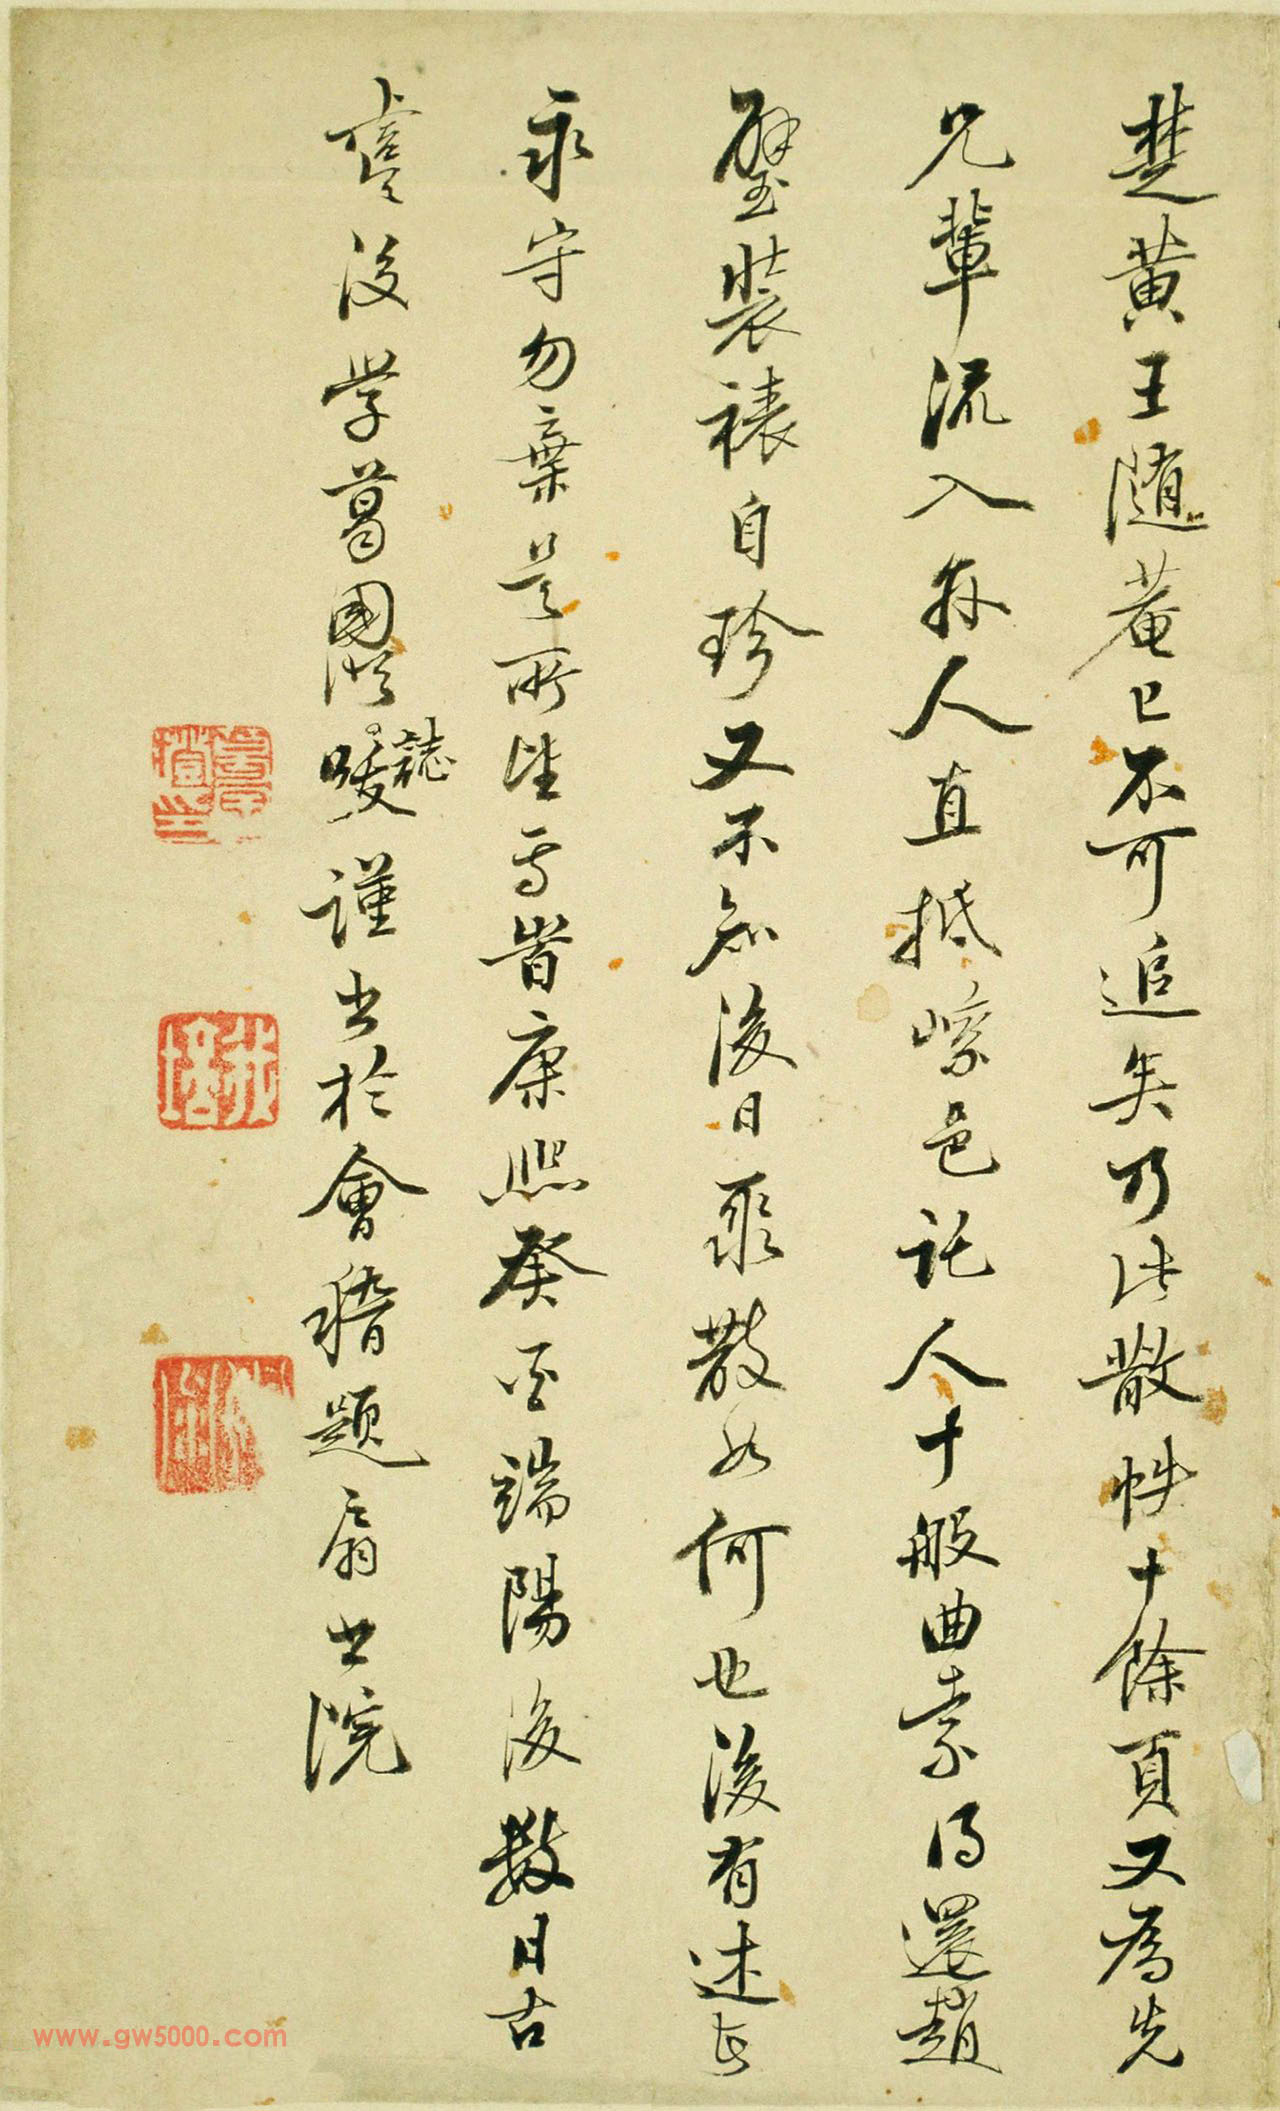 楚黄王随菴已不可追矣乃此散帙十餘頁又為先
兄輩流入孫人直抵嵊邑託人十般曲索得還趙
璧裝裱自珍又不知後日聚散如何也後有述者
永守勿棄是所望焉峕康熙癸酉端陽後數日古
虞後学葛國
誌
謹书於會稽題扇书院
www.gw5000.com